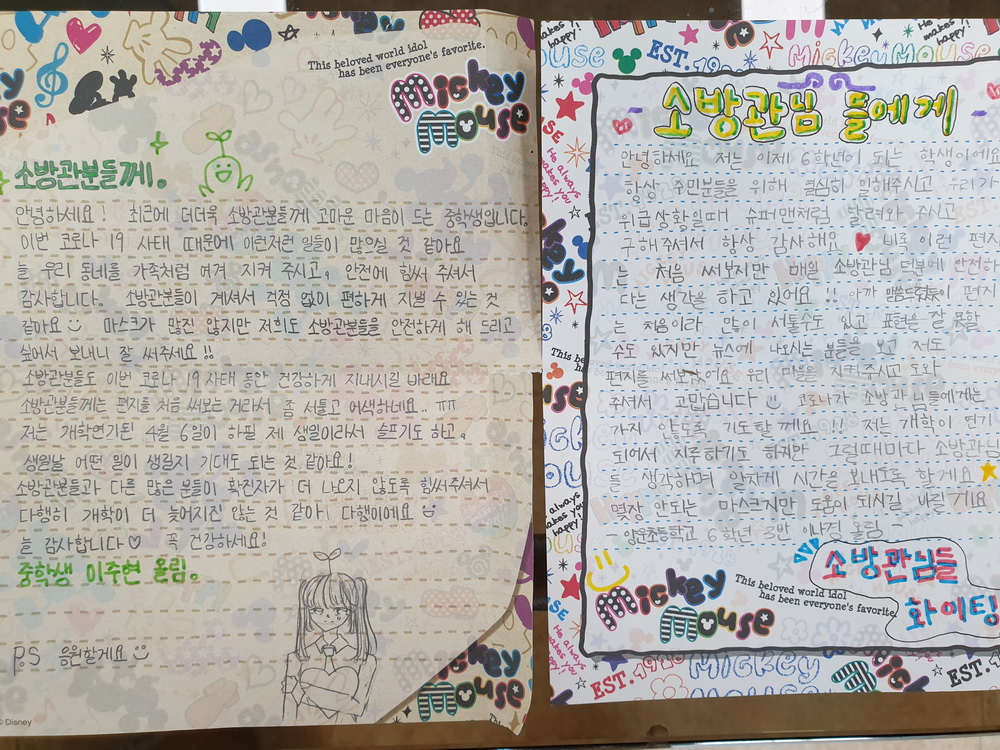 This beloved world idol
has been everyone's favorite.
Mickey
Mouse
소방관분들께.
안녕하세요! 최근에 더더욱 소방관분들께 고마운 마음이 드는 중학생입니다.
이번 코로나 19 사태 때문에 이런저런 일들이 많으실 것 같아요
늘 우리 동네를 가족처럼 여겨 지켜 주시고, 안전에 힘써 주셔서
감사합니다. 소방관분들이 계셔서 걱정 없이 편하게 지낼 수 있는 것
같아요 마스크가 많진 않지만 저희도 소방관분들을 안전하게 해 드리고
싶어서 보내니 잘 써주세요!!
소방관분들도 이번 코로나 19 사태 동안 건강하게 지내시길 바래요
소방관분들께는 편지를 처음 써보는 거라서 좀 서툴고 어색하네요.. ㅠㅠ
저는 개학연기된 4월 6일이 하필 제 생일이라서 슬프기도 하고,
생일날 어떤 일이 생길지 기대도 되는 것 같아요!
소방관분들과 다른 많은 분들이 확진자가 더 나오지 않도록 힘써주셔서
다행히 개학이 더 늦어지진 않는 것 같아 다행이에요
늘 감사합니다♡ 꼭 건강하세요!
중학생 이주현 올림.
P.S 응원할게요
© Disney
Mickey
Mouse
소방관님 들에게
안녕하세요 저는 이제 6학년이 되는 학생이에요
항상 주민분들을 위해 열심히 일해주시고 우리가
위급상황일때 슈퍼맨처럼 달려와 주시고
구해주셔서 항상 감사해요 ♥ 비록 이런 편지
는 처음 써보지만 매일 소방관님 덕분에 안전하
다는 생각을 하고 있어요!! 아까 이 편지
는 처음이라 많이 서툴수도 있고 표현을 잘 못할
수도 있지만 뉴스에 나오시는 분들을 보고 저도
편지를 써보았어요 우리 마을을 지켜주시고 도와
주셔서 고맙습니다 코로나가 소방관님들에게는
가지 않도록 기도할께요!!! 저는 개학이 연기
되어서 지루하기도 하지만 그럴때마다 소방관님
들 생각하며 알차게 시간을 보내도록 할게요
몇장 안되는 마스크지만 도움이 되시길 바랄게요
초등학교 6학년 3반 올림 -
Mickey
Mouse
This beloved world idol
has been everyone's favorite.
소방관님들
화이팅
EST. 19